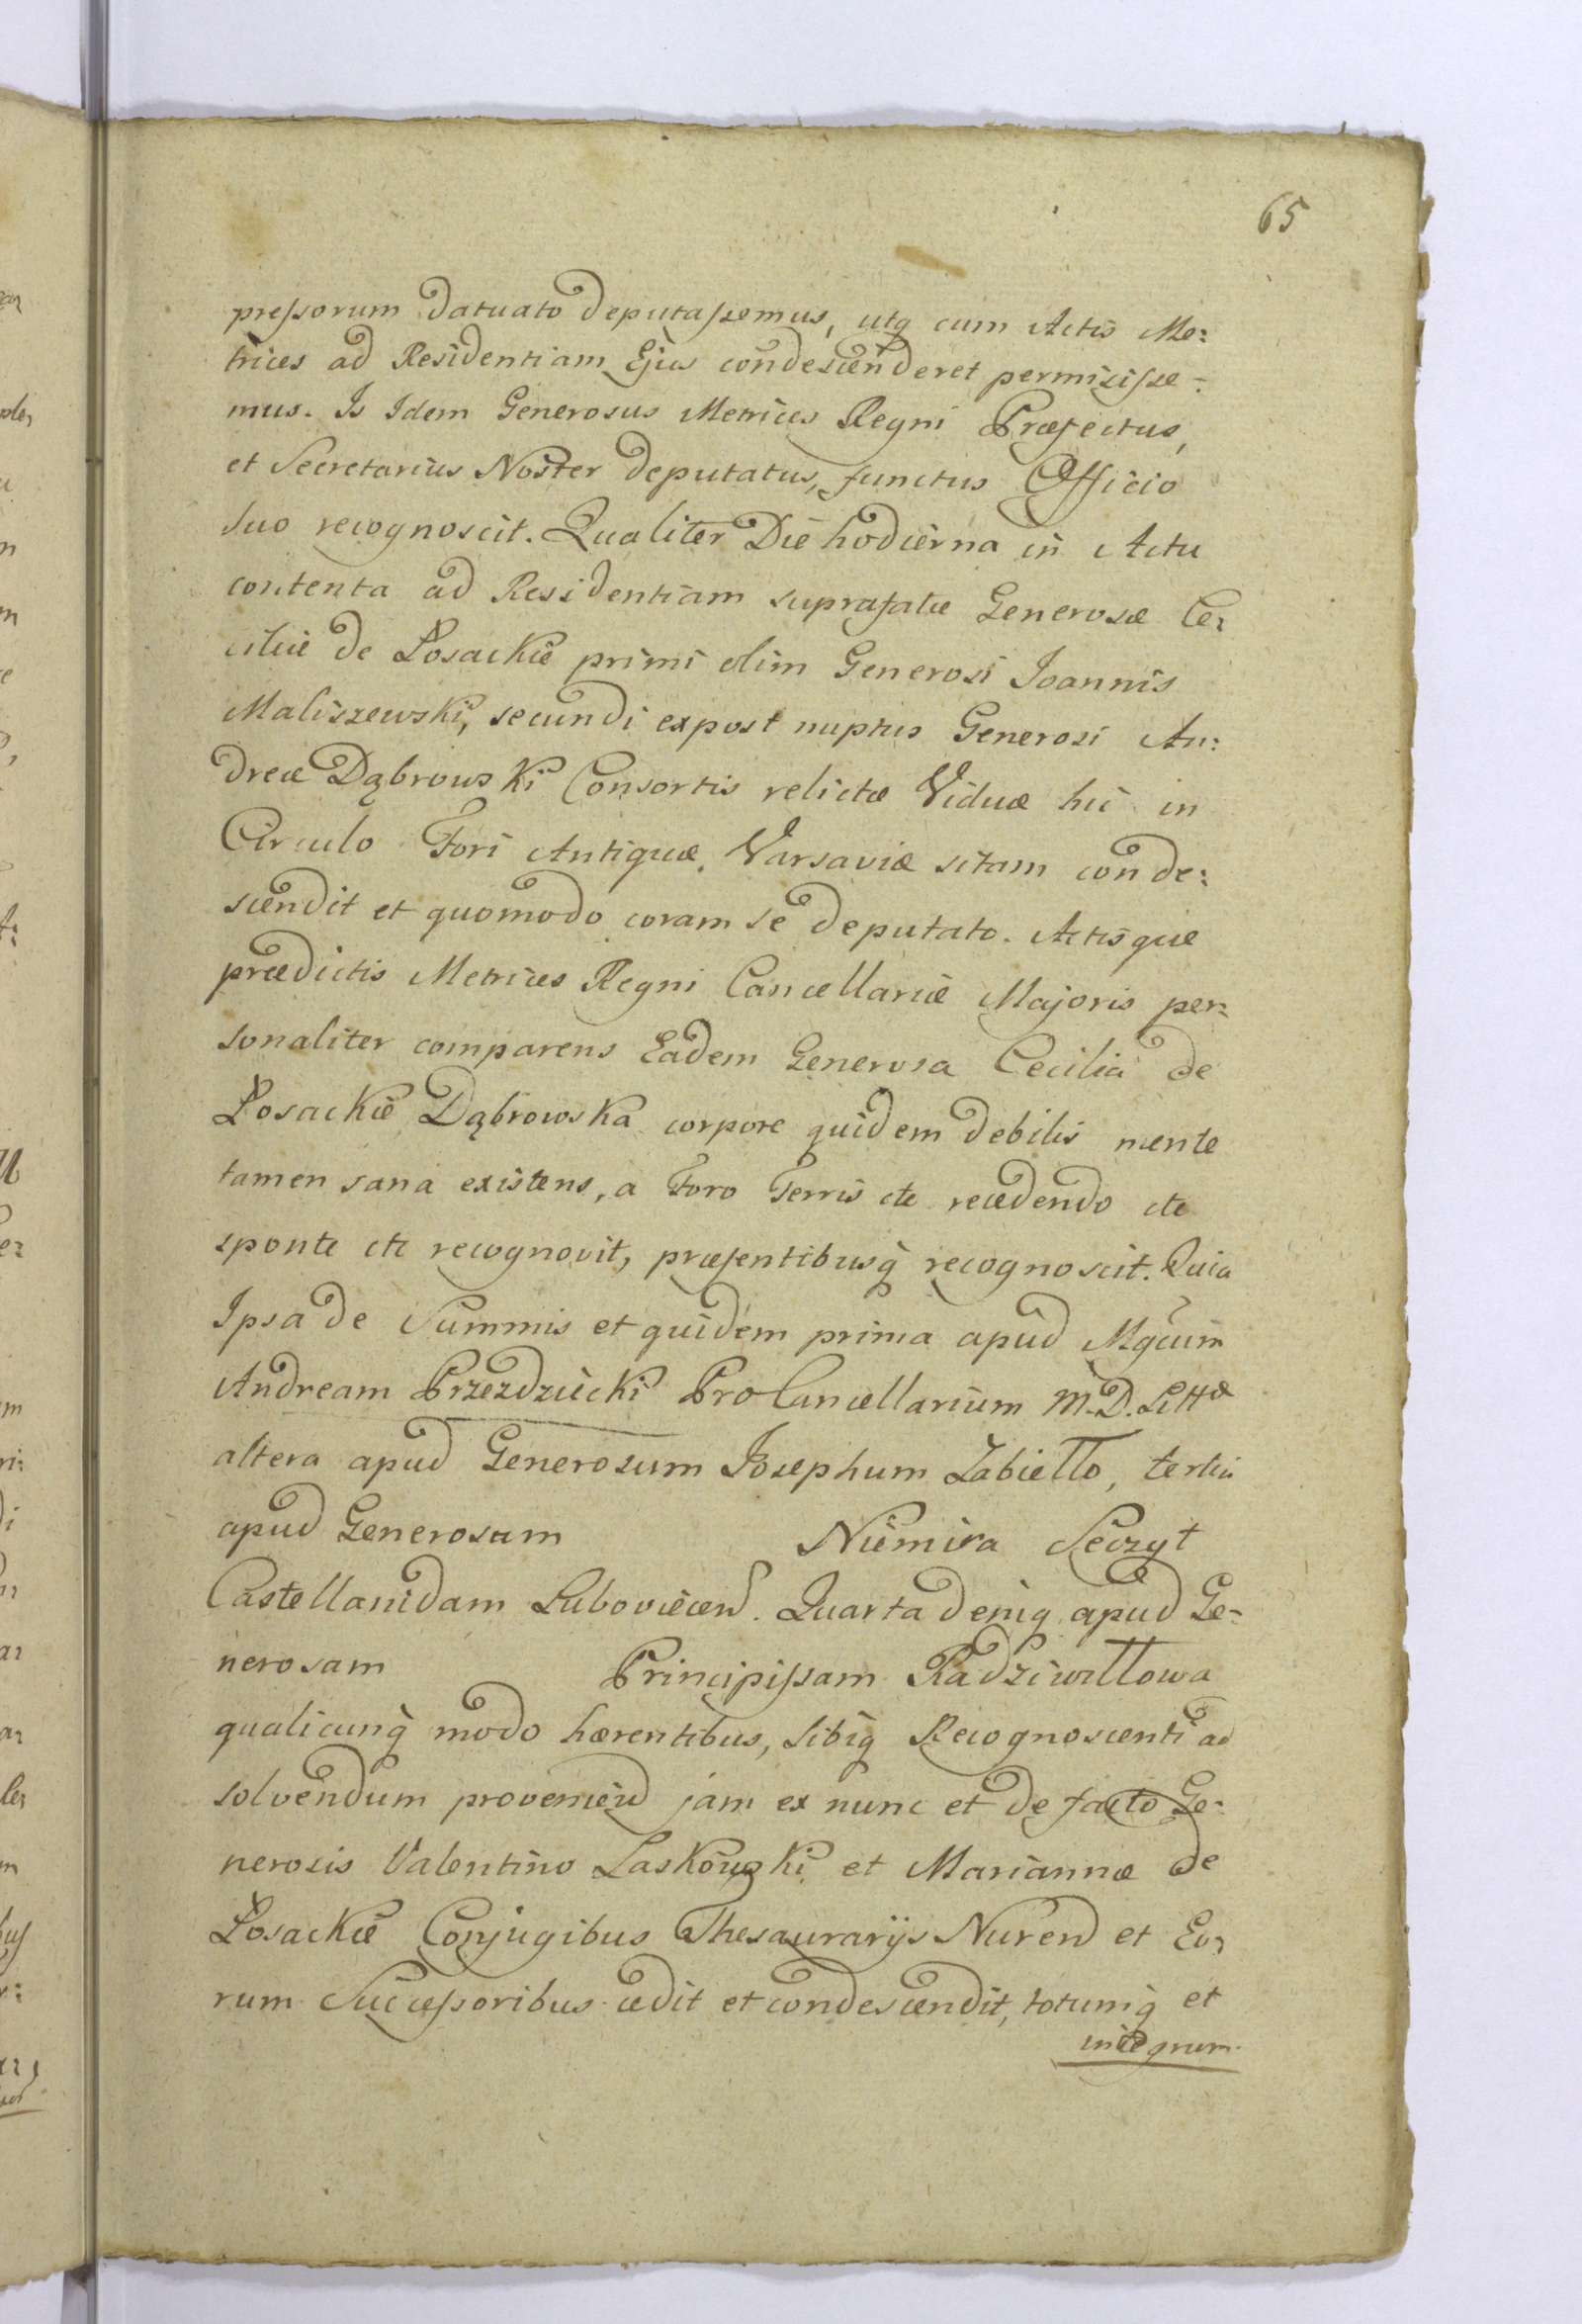 65
pressorum datuato deputassemus, utq cum Actis Me:
trices ad Residentiam Ejus condescenderet permisisse:
mus. Is Idem Generosus Metrices Regni Præfectus,
et Secretarius Noster deputatus, functus Officio
suo recognoscit. Qualiter Die hodierna in Actu
contenta ad Residentiam suprafatæ Generosæ Ce:
ciliæ de Łosackie primi olim Generosi Joannis
Maliszewski, secundi expost nuptus Generosi An:
dreæ Dąbrowski Consortis relictæ Viduæ hic in
Circulo Fori Antiquæ Varsaviæ sitam conde:
scendit et quomodo coram se deputato. Actisque
prædictis Metrices Regni Cancellariæ Majoris per:
sonaliter comparens Eadem Generosa Cecilia de
Łosackie Dąbrowska corpore quidem debilis mente
tamen sana existens, a Foro Terris etc recedendo etc
sponte etc recognovit, præsentibusq recognoscit. Quia
Ipsa de Summis et quidem prima apud Mgcum
Andream Przezdziecki ProCancellarium M.D. Littæ
altera apud Generosum Josephum Zabiełło, tertia
apud Generosam Niemira Sczyt
Castellanidam Luboviecen. Quarta deniq apud Ge-
nerosam Principissam Radziwiłłowa
qualicunq modo hærentibus, sibiq Recognoscenti ad
solvendum provenien jam ex nunc et de facto Ge:
nerosis Valentino Laskowski et Mariannæ de
Łosackie Conjugibus Thesaurarijs Nuren et Eo:
rum Successoribus cedit et condescendit, totumq et
integrum